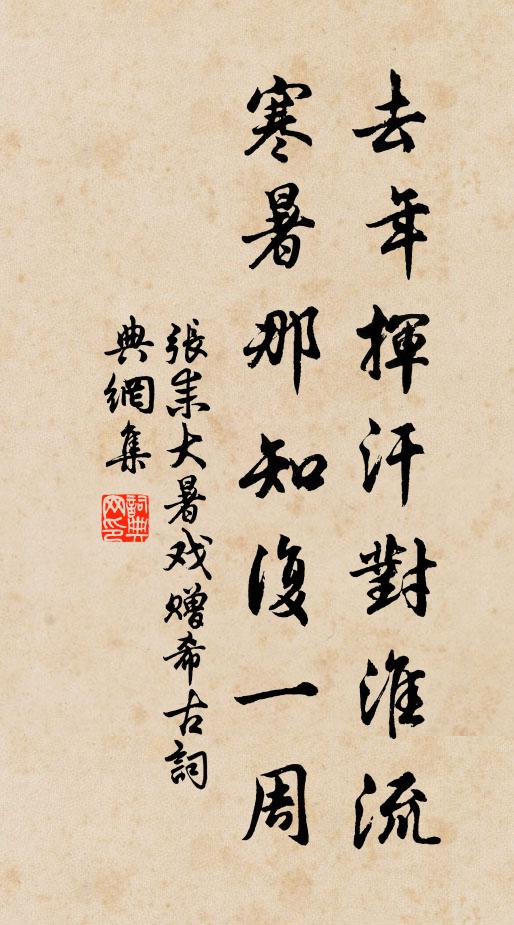 去年揮汗對淮流
寒暑那知復一周
張耒大暑戏赠希古詞
典網集
詞典網印